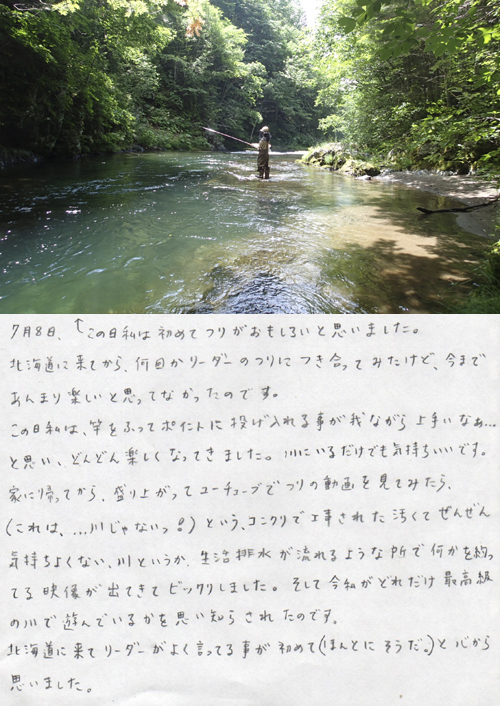 7月8日、↑この日私は初めてつりがおもしろいと思いました。
北海道に来てから、何回かリーダーのつりにつき合ってみたけど、今まで
あんまり楽しいと思ってなかったのです。
この日私は、竿をふってポイントに投げ入れる事が我ながら上手いなぁ…
と思い、どんどん楽しくなってきました。川にいるだけでも気持ちいいです。
家に帰ってから、盛り上がってユーチューブでつりの動画を見てみたら、
(これは、…川じゃないっ!)という、コンクリで工事された汚くてぜんぜん
気持ちよくない、川というか、生活排水が流れるような所で何かを釣っ
てる映像が出てきてビックリしました。そして今私がどれだけ最高級
の川で遊んでいるかを思い知らされたのです。
北海道に来てリーダーがよく言ってる事が初めて(ほんとにそうだ。)と心から
思いました。